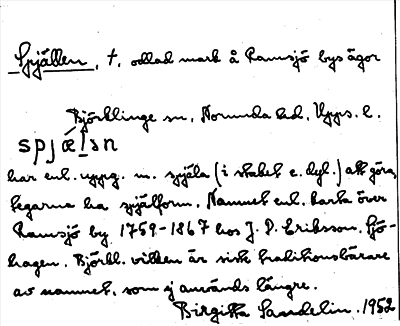 Spjällen, t. odlad mark å Ramsjö bys ägor
Björklinge sn, Norunda hd, Upps. l.
spjæ̀lən
har enl. uppg. m. spjäla (i staket e. dyl.) att göra,
tegarna ha spjälform. Namnet enl. karta över
Ramsjö by 1759-1867 hos J. P. Eriksson, Sjö-
hagen, Björkl. vilken är sista traditionsbärare
av namnet, som ej används längre.
Birgitta Sandelin. 1952